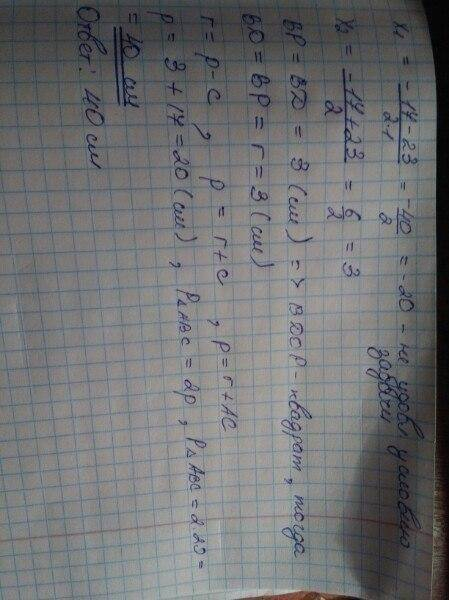 x₁ = -17-23 / 2·1 = -40 / 2 = -20 - не удов. условию
задачи
x₂ = -17+23 / 2 = 6 / 2 = 3
BP = BD = 3 (см) => BDOP - квадрат, тогда
BD = BP = r = 3 (см)
r = p-c , p = r+c , p = r+AC
p = 3+17 = 20 (см) , P△ABC = 2p , P△ABC = 2·20 =
= 40 см
Ответ: 40 см